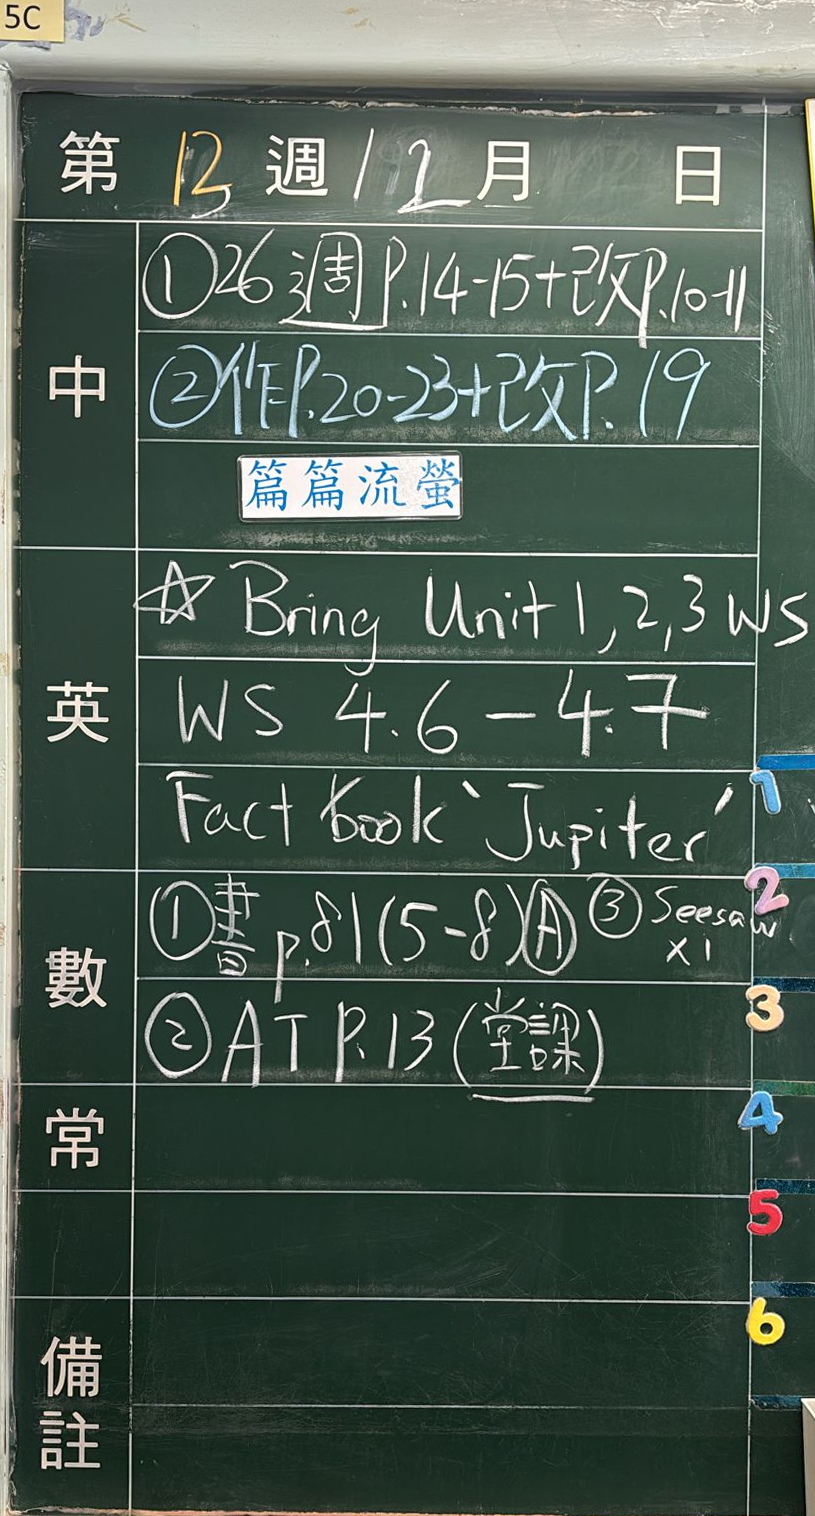 5C
第 13 週 12 月 日
中
①26週 P.14-15+改P.10-11
②作P.20-23+改P.19
篇篇流螢
英
☆ Bring Unit 1,2,3 WS
WS 4.6-4.7
Fact book 'Jupiter'
數
①書p.81(5-8)Ⓐ ③Seesaw x1
②AT P.13(堂課)
常
備註
1
2
3
4
5
6